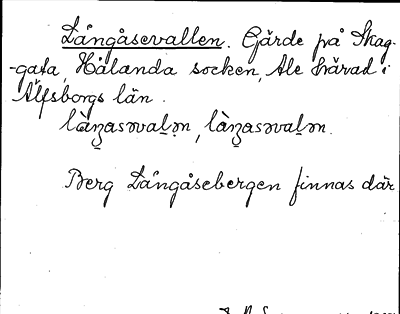 Långåsevallen. Gärde på Skag-
-gata, Hålanda socken, Ale härad i
Älfsborgs län.
lȧ̀ŋasəvaḷən, lȧ̀ŋasəvaḷən.
Berg Långåsebergen finnas där